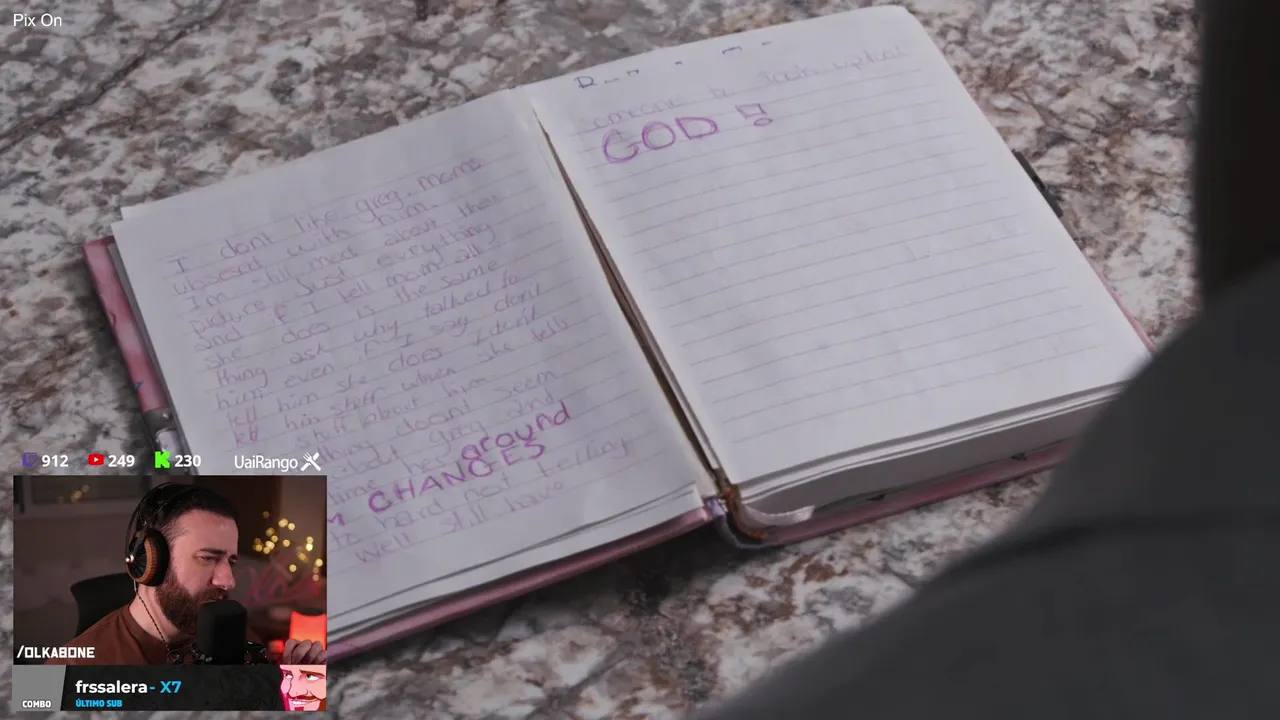 Pix On
I dont like greg. moms
obsesed with him.
I'm still mad about that
picture. Just everything
and if I tell mom all
she does is the same
thing ask why talked to
him even if I say don't
tell him she does I don't
tell his stuff when she tells
stuff about him
doesnt seem
about greg and
time he's around
CHANGES
to hard not telling
well still have
someone to
GOD !!
912 249 230 UaiRango
/OLKABONE
frssalera - X7
COMBO ÚLTIMO SUB